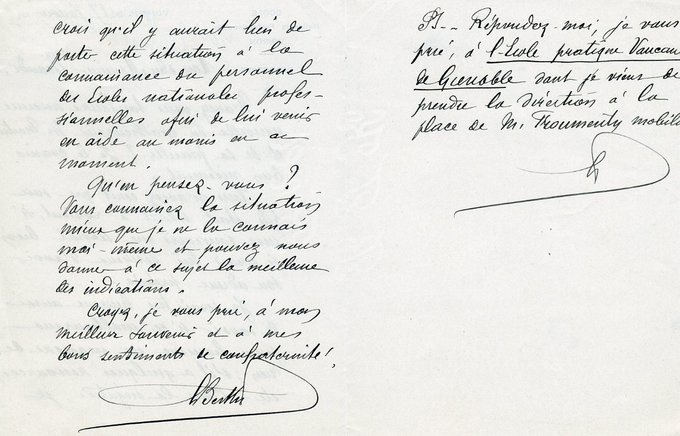 crois qu'il y aurait lieu de
porter cette situation à la
connaissance du personnel
des Ecoles nationales profes-
sionnelles afin de lui venir
en aide au moins en ce
moment.
Qu'en pensez-vous ?
Vous connaissez la situation
mieux que je ne la connais
moi-même et pouvez nous
donner à ce sujet la meilleure
des indications.
Croyez, je vous prie, à mon
meilleur souvenir et à mes
bons sentiments de confraternité!
PS -- Répondez-moi, je vous
prié, à l'Ecole pratique Vaucan
de Grenoble dont je viens de
prendre la direction à la
place de M. mobili